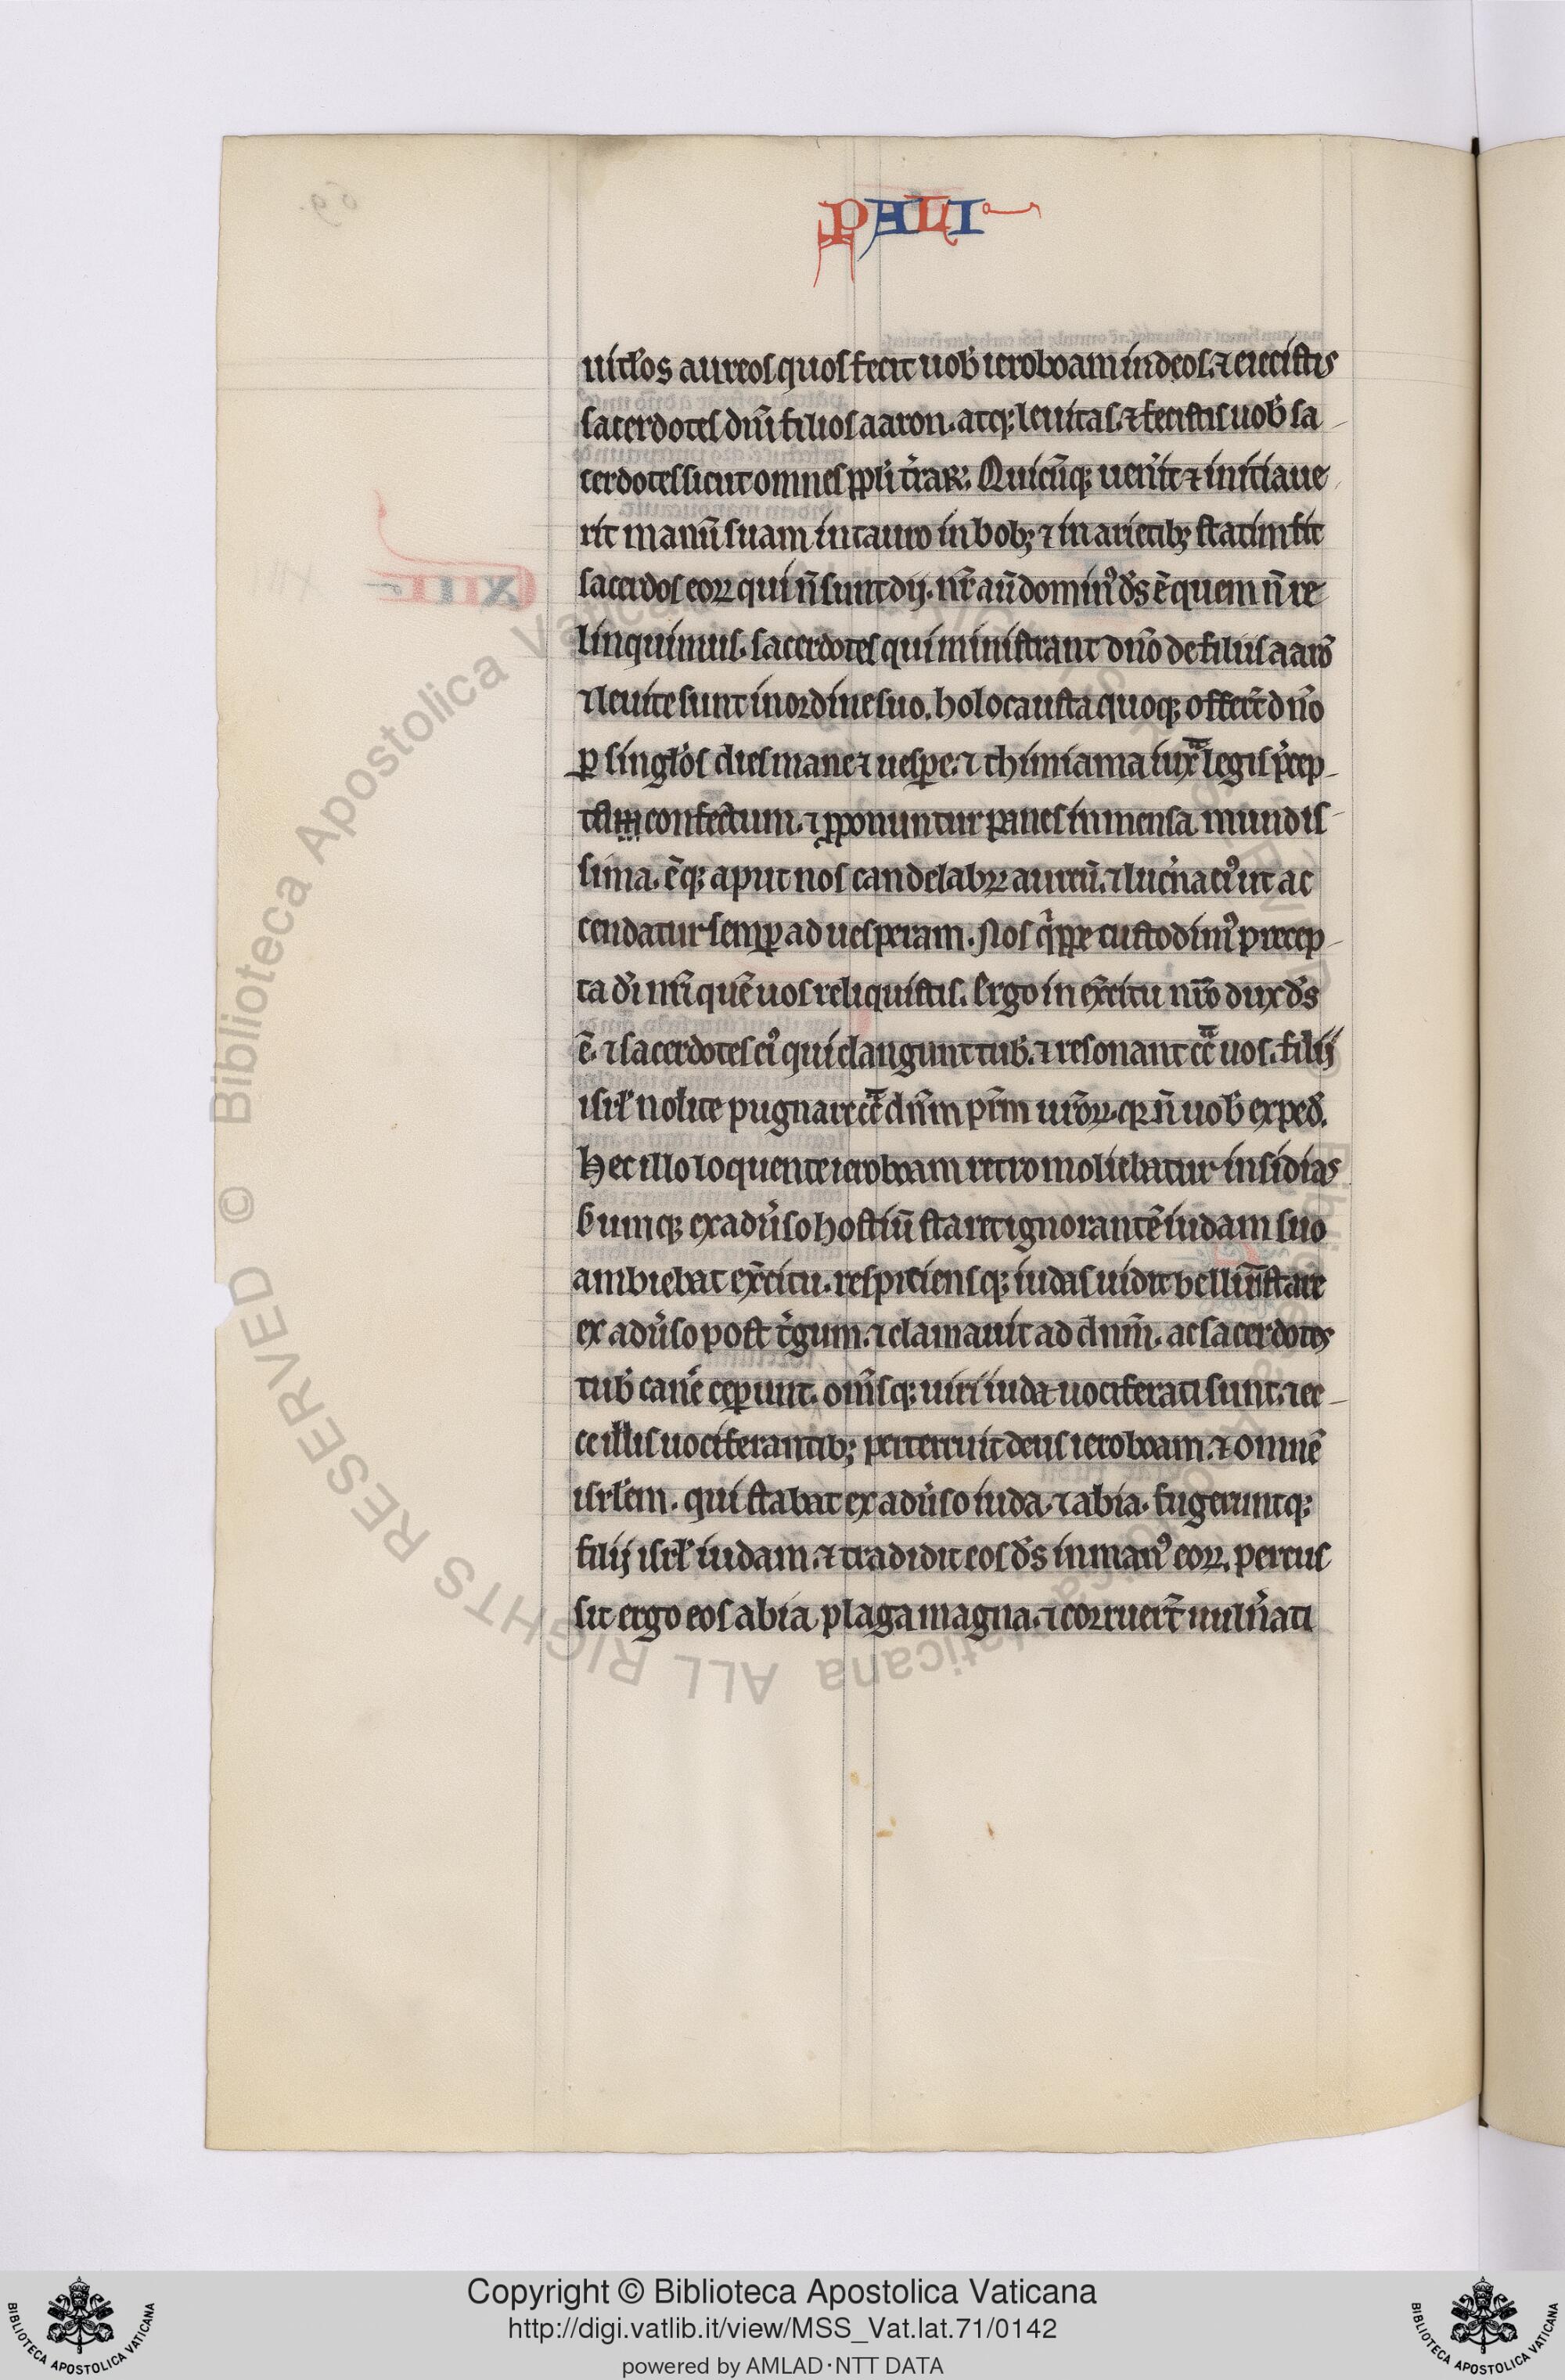 PALI
uitłos aureos quos fecit uob̄ ieroboam in deos. ⁊ eiecistis
sacerdotes dn̄i filios aaron. atq; leuitas. ⁊ fecistis uob̄ sa
cerdotes sicut omnes ppłi t̄raꝝ. Quicūq; uen̄it ⁊ initiaue
rit manū suam in tauro in bob; ⁊ in arietib; statim fit
sacerdos eoꝝ qui n̄ sunt dij. nr̄ aū dominꝰ ds̄ ē quem n̄ re
linquimus. sacerdotes qui ministrant dn̄o de filiis aarō
⁊ leuite sunt in ordine suo. holocausta quoq; offer̄t dn̄o
ꝑ singłos dies mane ⁊ uesꝑe. ⁊ thimiama iuxᵃ legis p̄cep
ta confectum. ⁊ ꝓponuntur panes in mensa mundis
sima. ēq; aput nos candelabꝝ aureū. ⁊ luc̄na eiꝰ ut ac
cendatur semꝑ ad uesperam. Nos qⁱppe custodimꝰ precep
ta dī nr̄i quē uos reliquistis. Ergo in ex̄citu nr̄o dux ds̄
ē. ⁊ sacerdotes eiꝰ qui clangunt tub̄. ⁊ resonant ct̄ᵃ uos. filij
isrł nolite pugnare ct̄ᵃ dn̄m pr̄m ur̄oꝝ. qꝛ n̄ uob̄ exped̄.
Hec illo loquente ieroboam retro moliebatur insidias
Cumq; ex adūso hostiū staret ignorantē iudam suo
ambiebat ex̄citu. respiciensq; iudas uidit bellū īstare
ex adūso post t̄gum. ⁊ clamauit ad dn̄m. ac sacerdotes
tub̄ can̄e ceꝑunt. om̄sq; uiri iuda uociferati sunt. ⁊ ec
ce illis uociferantib; perterruit deus ieroboam. ⁊ omnē
isrłem. qui stabat ex adūso iuda. ⁊ abia. fugeruntq;
filij isrł iudam. ⁊ tradidit eos ds̄ in manꝰ eoꝝ. percus
sit ergo eos abia plaga magna. ⁊ corruer̄t uuln̄ati
© Biblioteca Apostolica Vaticana ALL RIGHTS RESERVED
Copyright © Biblioteca Apostolica Vaticana
http://digi.vatlib.it/view/MSS_Vat.lat.71/0142
powered by AMLAD·NTT DATA
BIBLIOTECA APOSTOLICA VATICANA
BIBLIOTECA APOSTOLICA VATICANA